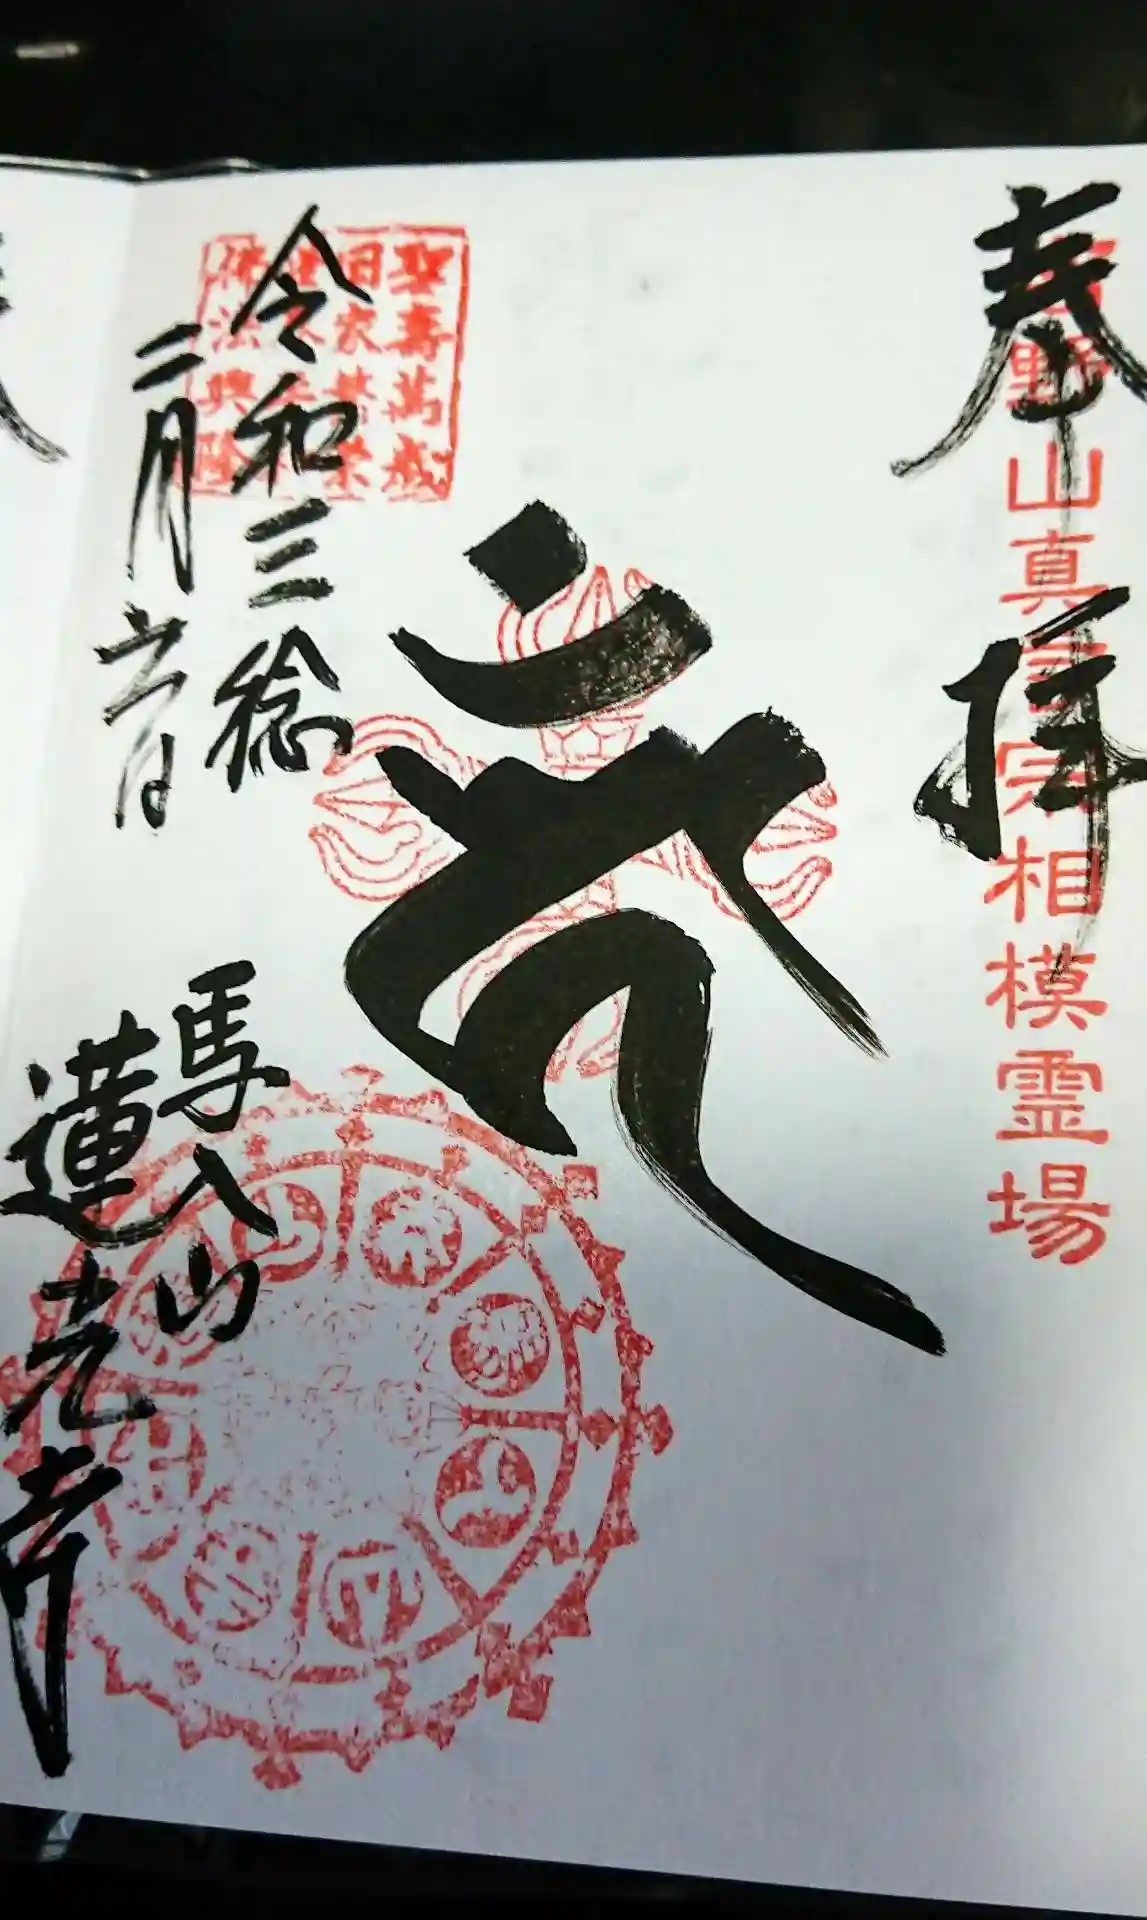 奉拝
高野山真言宗相模霊場
聖壽萬歳
国家繁栄
佛法興隆
令和三稔
二月六日
馬入山
蓮光寺